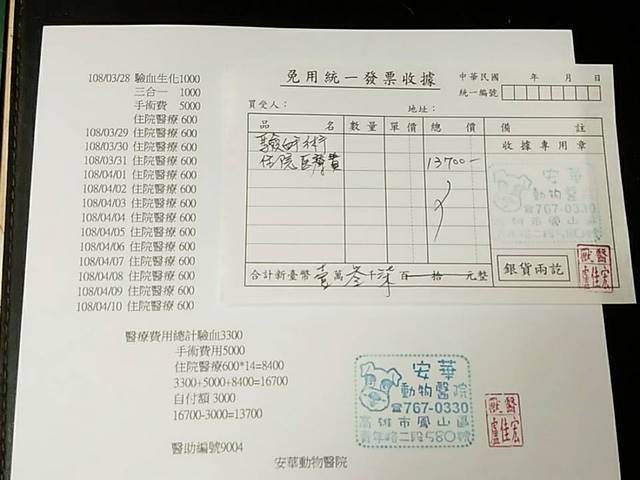 108/03/28 驗血生化1000
三合一 1000
手術費 5000
住院醫療 600
108/03/29 住院醫療 600
108/03/30 住院醫療 600
108/03/31 住院醫療 600
108/04/01 住院醫療 600
108/04/02 住院醫療 600
108/04/03 住院醫療 600
108/04/04 住院醫療 600
108/04/05 住院醫療 600
108/04/06 住院醫療 600
108/04/07 住院醫療 600
108/04/08 住院醫療 600
108/04/09 住院醫療 600
108/04/10 住院醫療 600
醫療費用總計驗血3300
手術費用5000
住院醫療600*14=8400
3300+5000+8400=16700
自付額 3000
16700-3000=13700
醫助編號9004
安華動物醫院
免用統一發票收據
中華民國 年 月 日
統一編號
買受人：
地址：
品名 數量 單價 總價 備註
驗血手術
住院醫療費 13700-
收據專用章
安華
動物醫院
☎767-0330
高雄市鳳山區
青年路二段580號
銀貨兩訖
獸醫
盧佳宏
合計新臺幣 壹萬 叁千 柒百 拾 元整
安華
動物醫院
☎767-0330
高雄市鳳山區
青年路二段580號
獸醫
盧佳宏